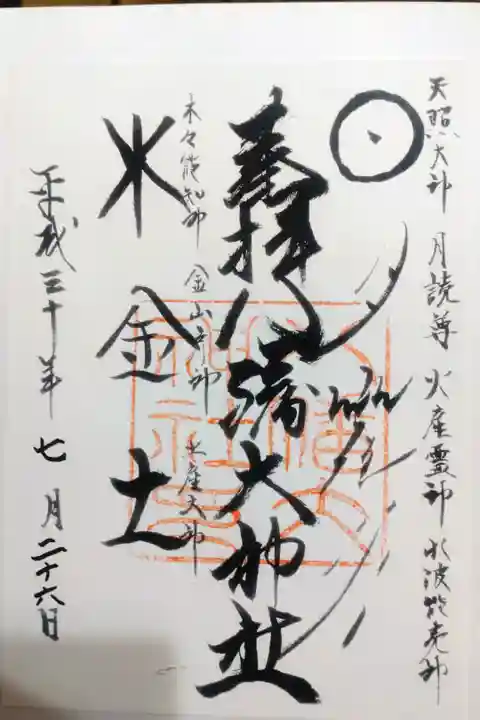 天照大神 月読尊 火産霊神 水波能売神
奉拝 八幡大神社
木々能知神 金山彦神 土産大神
木 金 土
平成三十年 七月二十六日